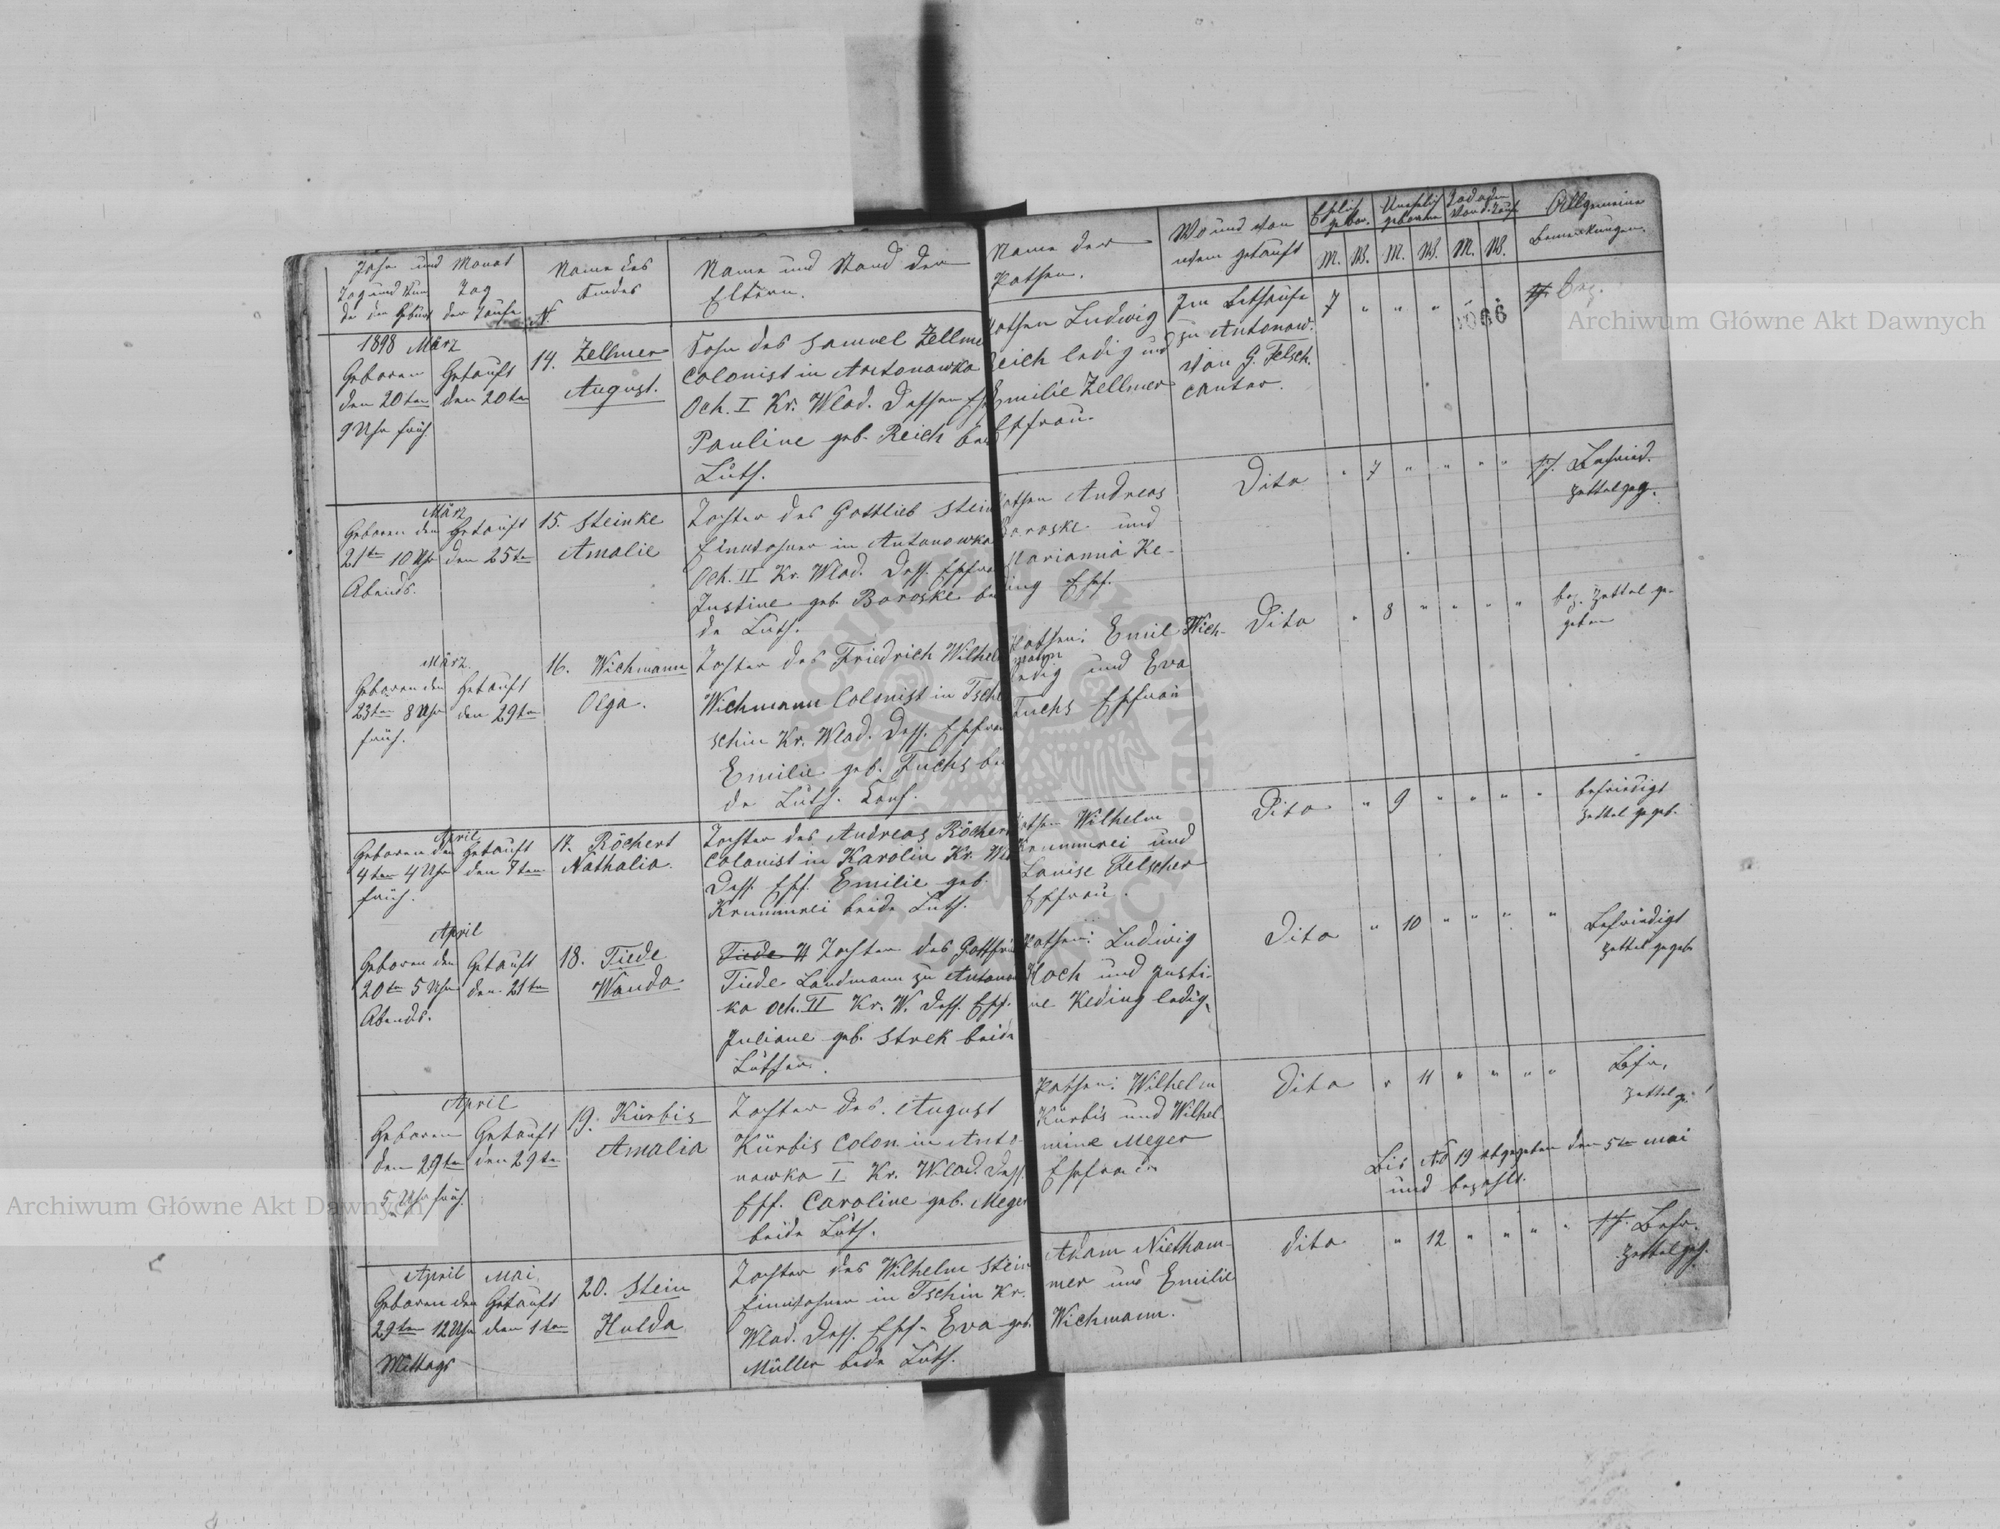 Jahr und Monat
Tag und Stun
de der Geburt
Tag
der Taufe
N.
Name des
Kindes
Name und Stand der
Eltern.
Name der
Pathen.
Wo und von
wem getauft
Ehelich
gebor.
Unehelich
geboren
Tod oder
M. W. M. W. M. W.
Allgemeine
Bemerkungen.
1898 März
Geboren
den 20ten
9 Uhr früh.
Getauft
den 20ten
14. Zellmer
August.
Sohn des Samuel Zellme
Colonist in Antonowka
Och. I Kr. Wlad. Dessen Eh
Pauline geb. Reich bei
Luth.
Pathen Ludwig
Reich ledig und
Emilie Zellmer
Ehfrau.
Im Bethause
zu Antonow.
von G. Felsch.
Cantor.
7 " " "
1066
März
Geboren den
21ten 10 Uhr
Abends.
Getauft
den 25ten
15. Steinke
Amalie
Tochter des Gottlieb Stein
Einwohner in Antonowka
Och. II Kr. Wlad. Dess. Ehfrau
Justine geb. Boroske bei
de Luth.
Pathen Andreas
Boroske und
Marianna Ke-
ding Ehf.
Dito
" 7 " " " "
Befried.
Zettel geg.
März
Geboren den
23ten 8 Uhr
früh.
Getauft
den 29ten
16. Wichmann
Olga.
Tochter des Friedrich Wilhel
Wichmann Colonist in Tsch
schin Kr. Wlad. Dess. Ehefrau
Emilie geb. Fuchs bei
de Luth. Conf.
Pathen: Emil Wich-
mann
ledig und Eva
Fuchs Ehfrau
Dito
" 8 " " " "
bez. Zettel ge-
geben
April
Geboren den
4ten 4 Uhr
früh.
Getauft
den 7ten
17. Röchert
Nathalia.
Tochter des Andreas Röchert
Colonist in Karolin Kr. Wla
Dess. Ehf. Emilie geb.
Krummrei beide Luth.
Pathen Wilhelm
Krummrei und
Louise Felscher
Ehfrau.
Dito
" 9 " " " "
befriedigt
Zettel gegeb.
April
Geboren den
20ten 5 Uhr
Abends.
Getauft
den 21ten
18. Tiede
Wanda
Tiede Tochter des Gottfri
Tiede Landmann zu Antonow
ka Och. II Kr. W. Dess. Ehf.
Juliane geb. Strek beide
Luther.
Pathen: Ludwig
Koch und Justi-
ne Keding ledig.
Dito
" 10 " " " "
Befriedigt
Zettel gegeb
April
Geboren
den 29ten
5 Uhr früh.
Getauft
den 29ten
19. Kürbis
Amalia
Tochter des August
Kürbis Colon. in Anto
nowka I Kr. Wlad. Dess.
Ehf. Caroline geb. Meger
beide Luth.
Pathen: Wilhelm
Kürbis und Wilhel
mine Meger
Dito
" 11 " " " "
Befr.
Zettel g.
Bis No 19 abgegeben den 5ten Mai
und bezahlt.
April
Geboren den
29ten 12 Uhr
Mittags
Mai
Getauft
den 1ten
20. Stein
Hulda
Tochter des Wilhelm Stein
Einwohner in Tschin Kr.
Wlad. Dess. Ehf. Eva geb.
Müller beide Luth.
Adam Nietham-
mer und Emilie
Wichmann.
Dito
" 12 " " " "
Befr.
Zettel geg.
Archiwum Główne Akt Dawnych
Archiwum Główne Akt Dawnych